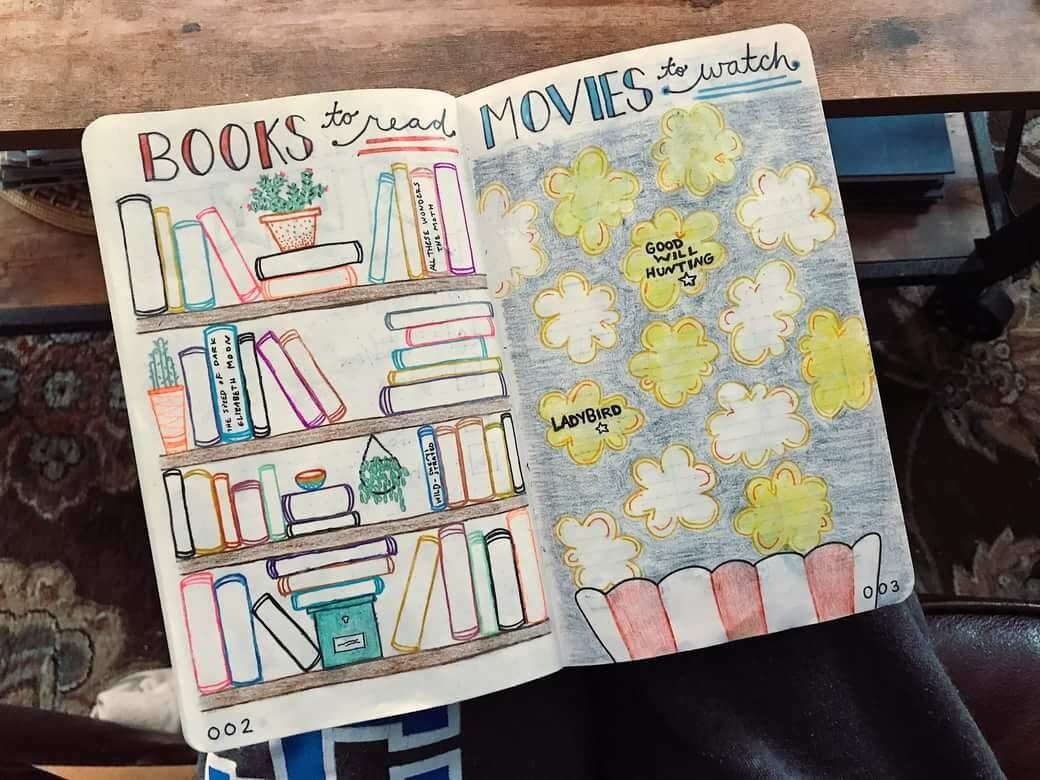 BOOKS to read
ALL THESE WONDERS
THE MOTH
THE SPEED OF DARK
ELIZABETH MOON
WILD-
STRAYED
002
MOVIES to watch
GOOD
WILL
HUNTING
LADYBIRD
003